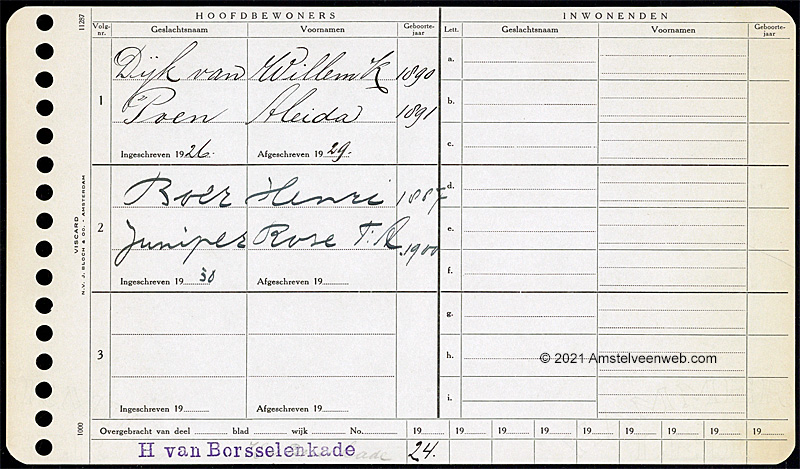 HOOFDBEWONERS INWONENDEN
Volg-nr. Geslachtsnaam Voornamen Geboorte-jaar Lett. Geslachtsnaam Voornamen Geboorte-jaar
1
Dijk van Willem K 1890
Poen Aleida 1891
Ingeschreven 1926. Afgeschreven 1929.
2
Boer Henri 1887
Juniper Rose T. A. 1900
Ingeschreven 19 30 Afgeschreven 19
3
Ingeschreven 19 Afgeschreven 19
a.
b.
c.
d.
e.
f.
g.
h.
i.
© 2021 Amstelveenweb.com
Overgebracht van deel blad wijk No. 19 19 19 19 19 19 19 19 19 19
H van Borsselenkade 24.
11287
VISCARD
N.V. J. BLOCH & CO. - AMSTERDAM
1000